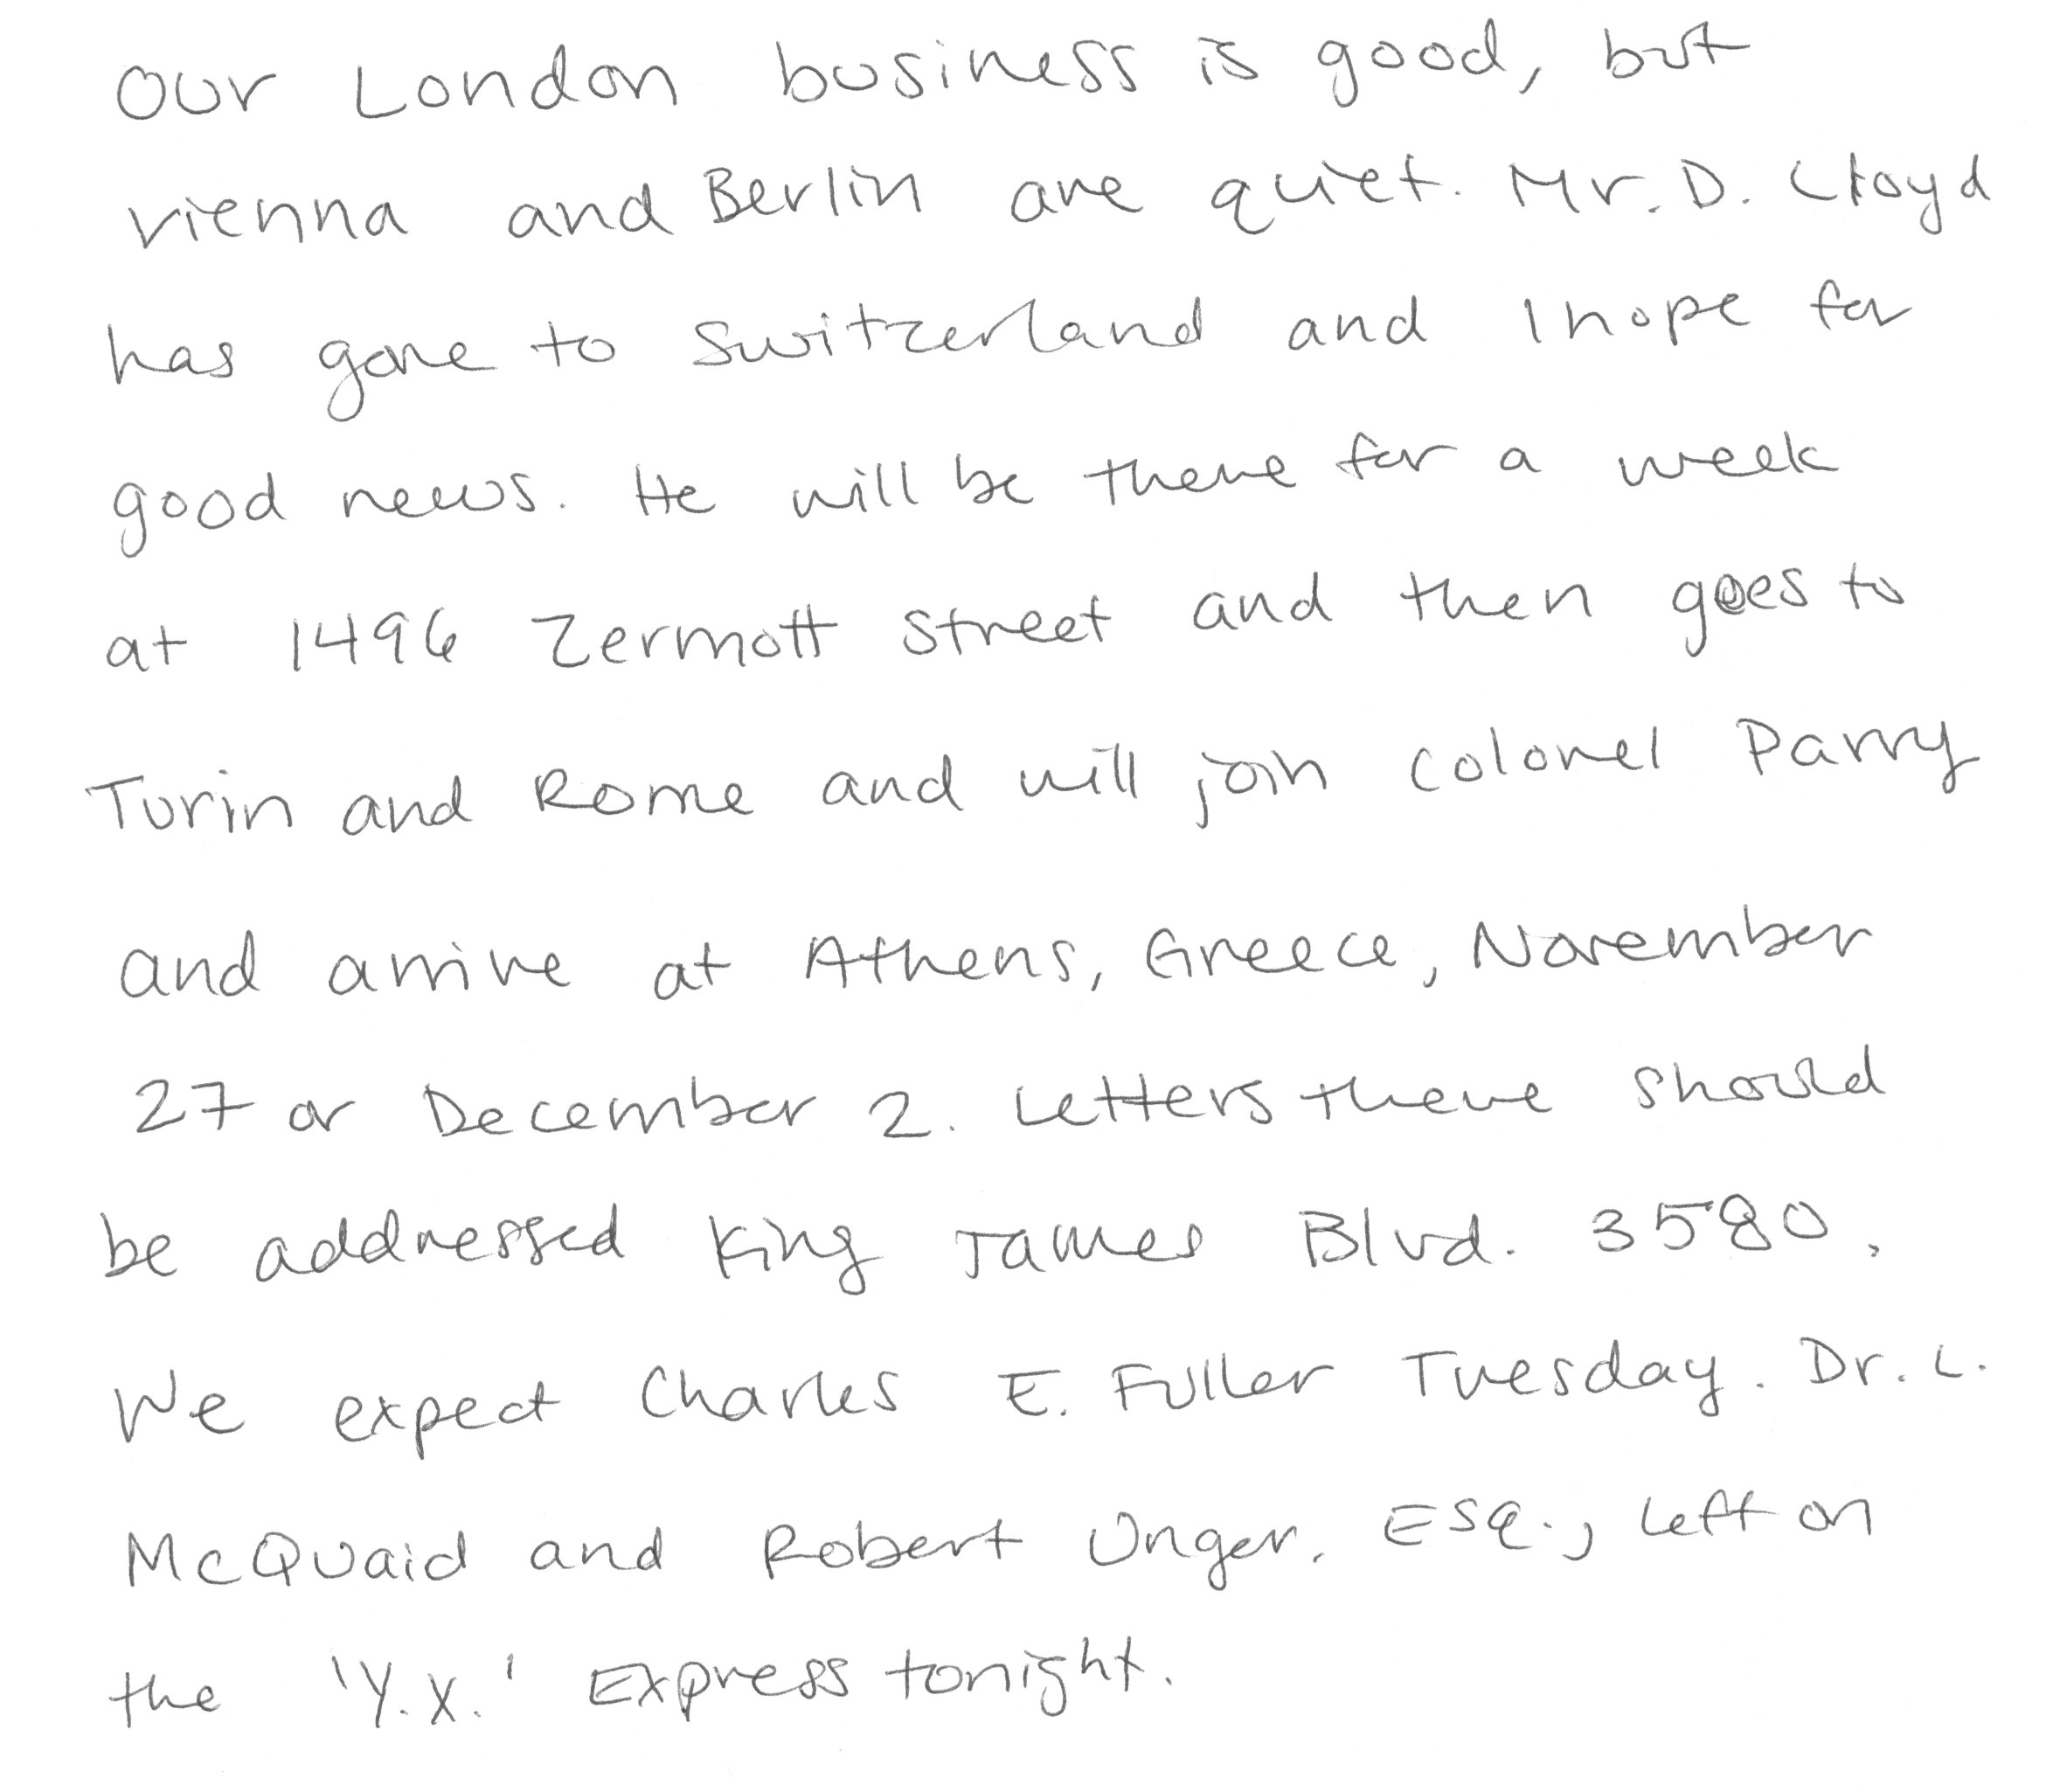 Our London business is good, but
Vienna and Berlin are quiet. Mr. D. Lloyd
has gone to Switzerland and I hope for
good news. He will be there for a week
at 1496 Zermott Street and then goes to
Turin and Rome and will join Colonel Parry
and arrive at Athens, Greece, November
27 or December 2. Letters there should
be addressed King James Blvd. 3580.
We expect Charles E. Fuller Tuesday. Dr. L.
McQuaid and Robert Unger. Esq., left on
the 'Y.X.' Express tonight.